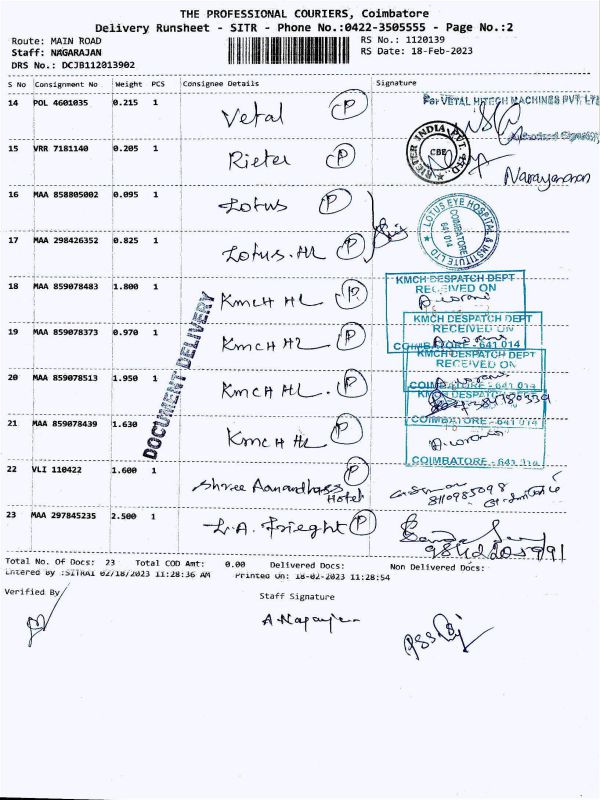 THE PROFESSIONAL COURIERS, Coimbatore
Delivery Runsheet - SITR - Phone No.:0422-3505555 - Page No.:2
Route: MAIN ROAD
RS No.: 1120139
Staff: NAGARAJAN
RS Date: 18-Feb-2023
DRS No.: DCJB112013902
S No Consignment No Weight PCS Consignee Details Signature
14 POL 4601035 0.215 1 Vetal P For VETAL HITECH MACHINES PVT. LTD
Authorised Signatory
15 VRR 7181140 0.205 1 Rieter P RIETER INDIA PVT. LTD. CBE Narayanan
16 MAA 858805002 0.095 1 Lotus P LOTUS EYE HOSPITAL & INSTITUTE LTD COIMBATORE 641 014
17 MAA 298426352 0.825 1 Lotus. HL P
18 MAA 859078483 1.800 1 KMCH HL P KMCH DESPATCH DEPT
RECEIVED ON
19 MAA 859078373 0.970 1 KMCH HL P KMCH DESPATCH DEPT
RECEIVED ON
COIMBATORE - 641 014
KMCH DESPATCH DEPT
RECEIVED ON
20 MAA 859078513 1.950 1 KMCH HL. P
COIMBATORE - 641 014
21 MAA 859078439 1.630 KMCH HL P
COIMBATORE - 641 014
COIMBATORE - 641 014
DOCUMENT DELIVERY
22 VLI 110422 1.600 1 Shree Aanandhass P
Hotel 8110985098
23 MAA 297845235 2.500 1 L.A. Frieght P
Total No. Of Docs: 23 Total COD Amt: 0.00 Delivered Docs: Non Delivered Docs:
Entered By :SITRAI 02/18/2023 11:28:36 AM Printed On: 18-02-2023 11:28:54
Verified By
Staff Signature